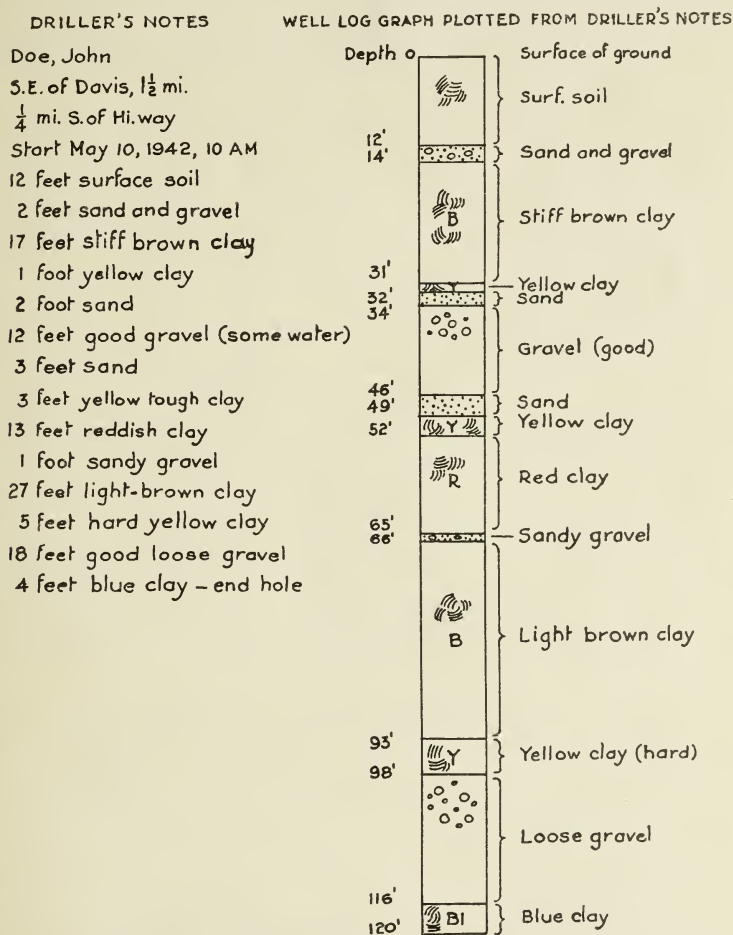 DRILLER'S NOTES
Doe, John
S.E. of Davis, 1½ mi.
¼ mi. S. of Hi.way
Start May 10, 1942, 10 AM
12 feet surface soil
2 feet sand and gravel
17 feet stiff brown clay
1 foot yellow clay
2 foot sand
12 feet good gravel (some water)
3 feet sand
3 feet yellow tough clay
13 feet reddish clay
1 foot sandy gravel
27 feet light-brown clay
5 feet hard yellow clay
18 feet good loose gravel
4 feet blue clay – end hole
WELL LOG GRAPH PLOTTED FROM DRILLER'S NOTES
Depth 0 Surface of ground
Surf. soil
12'
14' Sand and gravel
B Stiff brown clay
31'
Y Yellow clay
32' Sand
34'
Gravel (good)
46'
49' Sand
52' Y Yellow clay
R Red clay
65'
66' Sandy gravel
B Light brown clay
93'
Y Yellow clay (hard)
98'
Loose gravel
116'
Bl Blue clay
120'